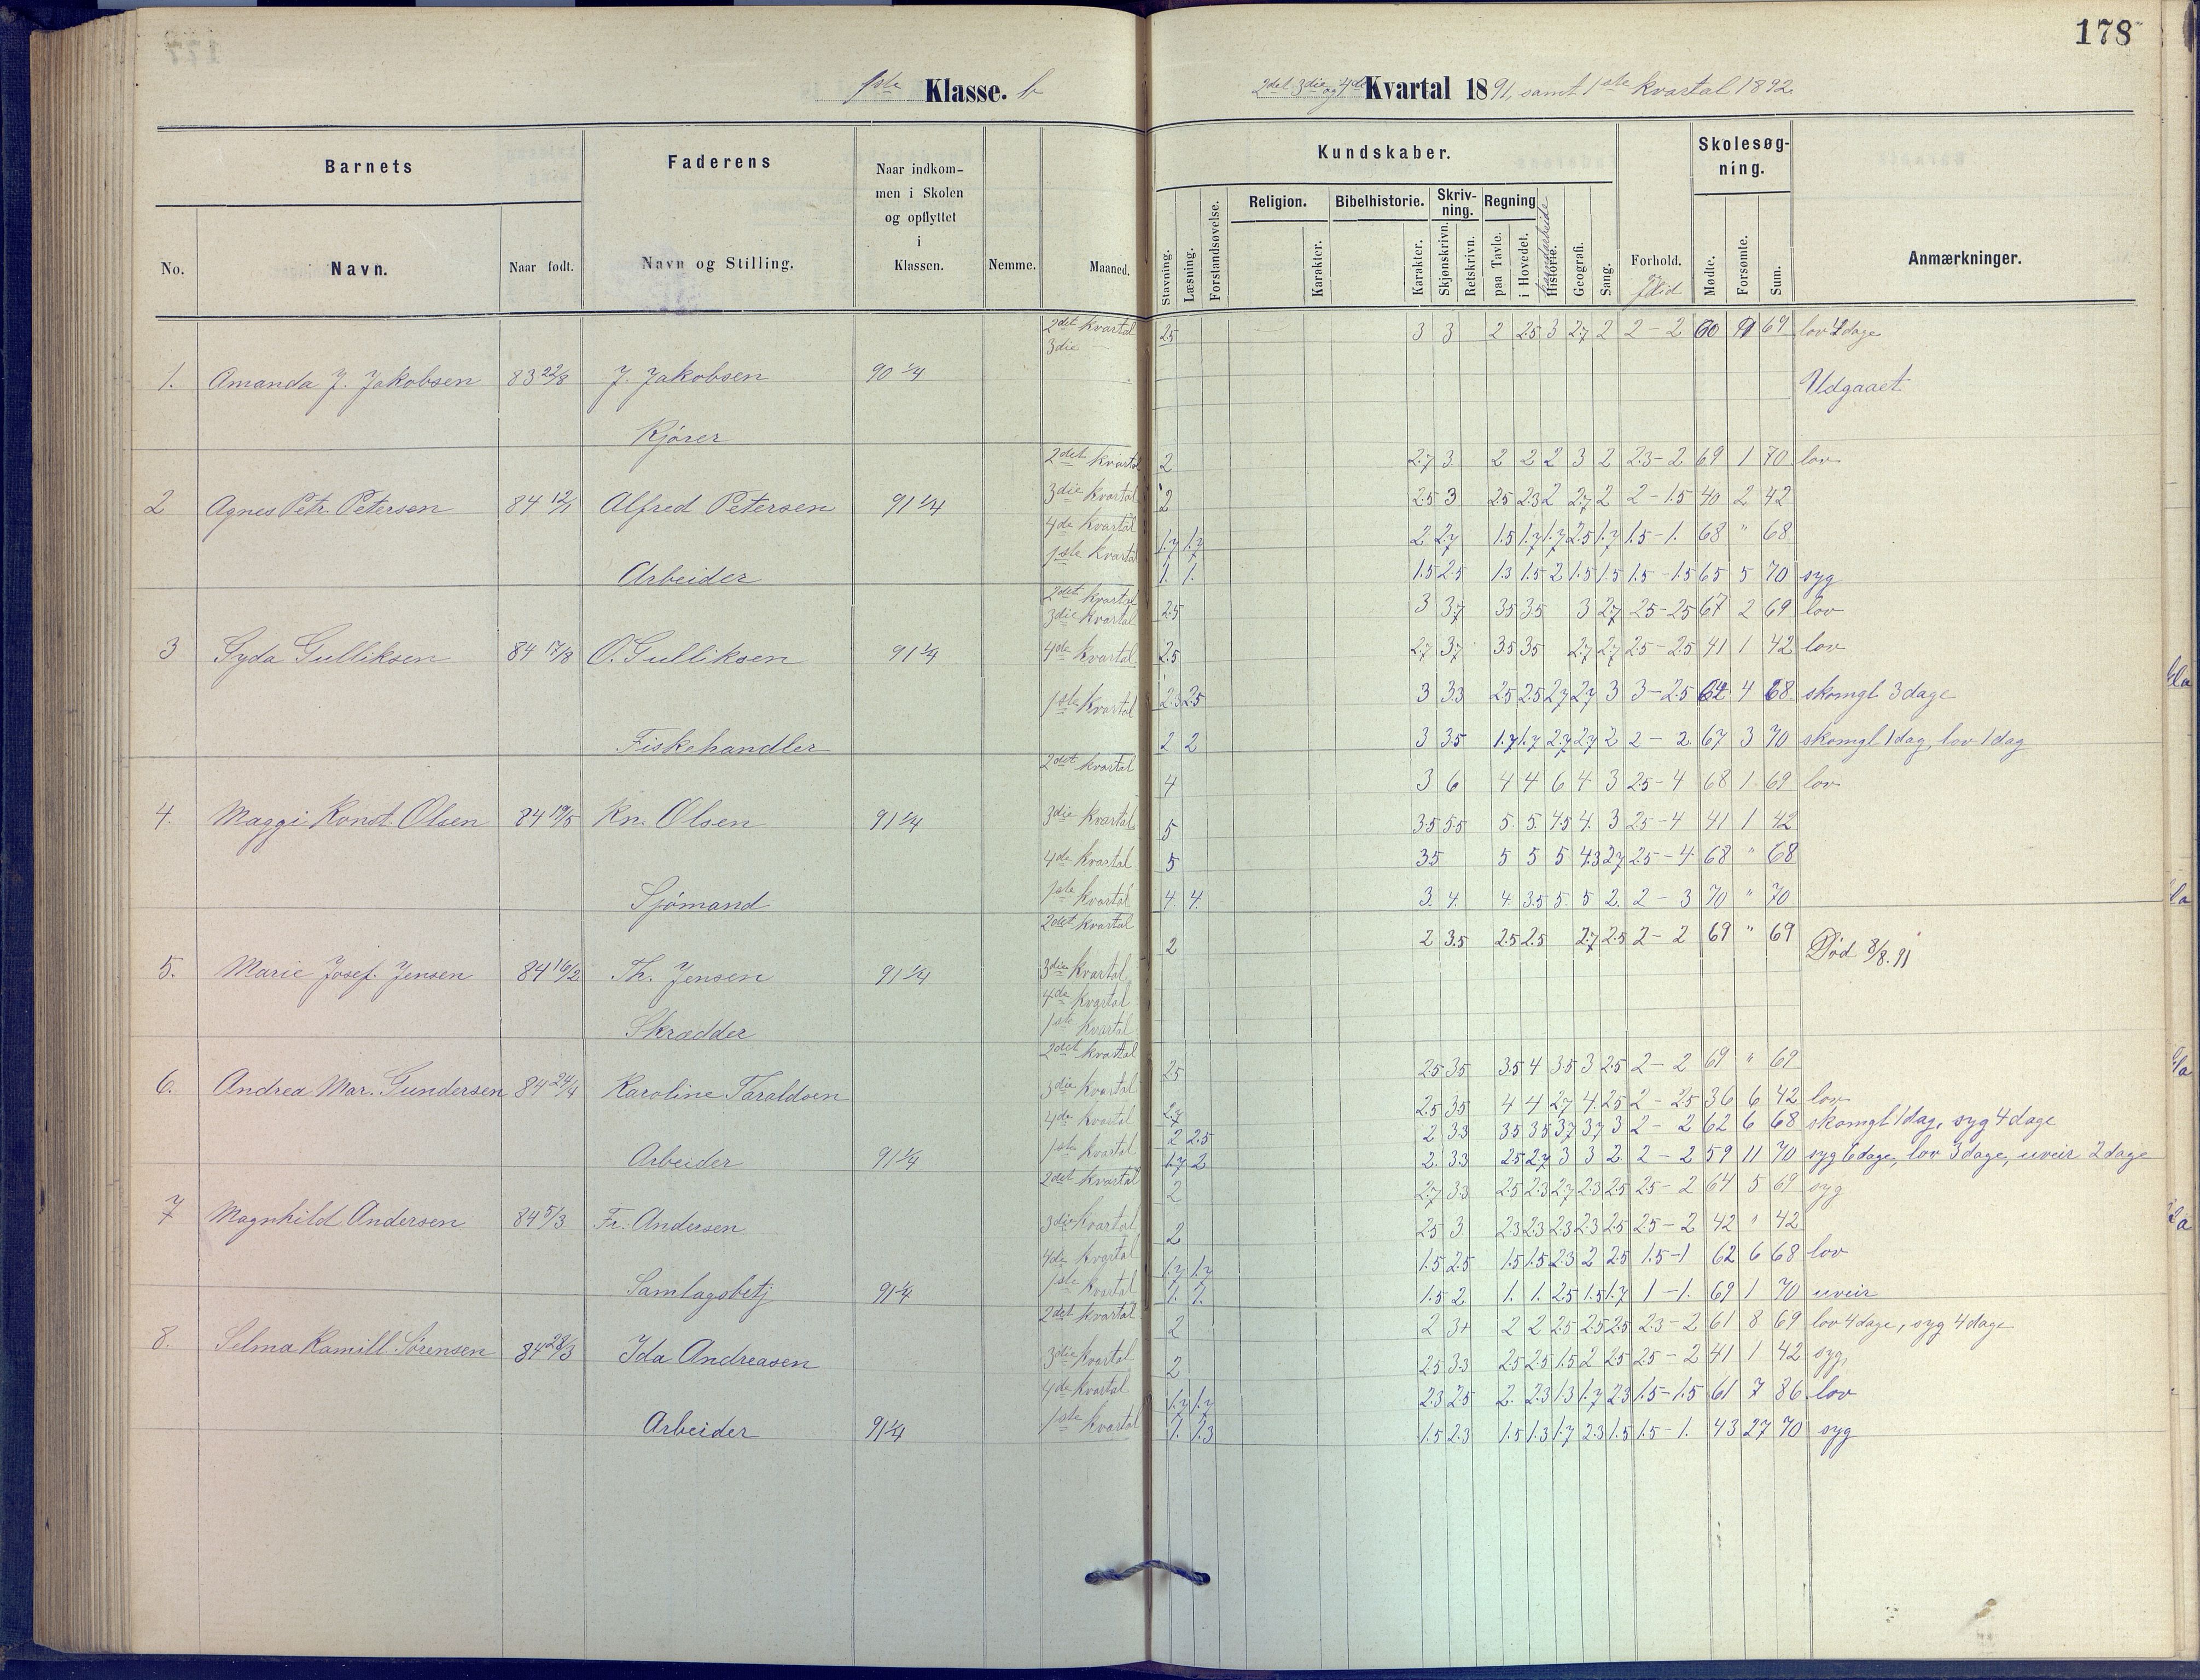 178
1ste Klasse. b
2det 3die og 4de Kvartal 1891, samt 1ste kvartal 1892.
Barnets
Faderens
Naar indkommen i Skolen og opflyttet i Klassen.
Nemme.
Maaned.
No.
Navn.
Naar født.
Navn og Stilling.
Kundskaber.
Skolesøgning.
Stavning.
Læsning.
Forstandsøvelse.
Religion.
Karakter.
Bibelhistorie.
Karakter.
Skrivning.
Skjønskrivn.
Retskrivn.
Regning
paa Tavle.
i Hovedet.
Haandarbeide
Historie.
Geografi.
Sang.
Forhold.
Flid
Mødte.
Forsømte.
Sum.
Anmærkninger.
2det kvartal 25 3 3 2 25 3 27 2 2-2 60 9 69 lov 4 dage
3die
1. Amanda J. Jakobsen 83 22/8 J. Jakobsen 90 1/4 Udgaaet
Kjører
2det kvartal 2 27 3 2 2 2 3 2 23-2 69 1 70 lov
2 Agnes Petr. Petersen 84 12/1 Alfred Petersen 91 1/4 3die kvartal 2 25 3 25 23 2 27 2 2-1.5 40 2 42
4de kvartal 1.7 1.7 2 27 1.5 1.7 1.7 2.5 1.7 1.5-1. 68 " 68
Arbeider 1ste kvartal 1. 1. 1.5 2.5 1.3 1.5 2 1.5 1.5 1.5-1.5 65 5 70 syg
2det kvartal 25 3 37 35 35 3 27 25-25 67 2 69 lov
3die kvartal
3 Gyda Gulliksen 84 17/8 O. Gulliksen 91 1/4 4de kvartal 25 27 37 35 35 27 27 25-25 41 1 42 lov
1ste kvartal 2.3 25 3 33 25 25 27 27 3 3-2.5 64 4 68 skomgl. 3 dage
Fiskehandler 2 2 3 35 1.7 1.7 27 27 2 2-2 67 3 70 skomgl 1 dag, lov 1 dag
2det kvartal 4 3 6 4 4 6 4 3 25-4 68 1 69 lov
4. Maggi Konst. Olsen 84 19/5 Kn. Olsen 91 1/4 3die kvartal 5 35 55 5. 5. 45 4. 3 25-4 41 1 42
4de kvartal 5 35 5 5 5 43 27 25-4 68 " 68
Sjømand 1ste kvartal 4. 4. 3. 4. 4. 35 5. 5 2. 2-3 70 " 70
2det kvartal 2 2 35 25 25 27 25 2-2 69 " 69 Død 8/8.91
5. Marie Josef. Jensen 84 16/2 Th. Jensen 91 1/4 3die kvartal
4de kvartal
Skrædder 1ste kvartal
2det kvartal 25 25 35 35 4 35 3 25 2-2 69 " 69
6. Andrea Mar. Gundersen 84 24/4 Karoline Taraldsen 3die kvartal 27 25 35 4 4 27 4. 25 2-25 36 6 42 lov
4de kvartal 2 25 2 33 35 35 37 37 3 2-2 62 6 68 skomgl 1 dag, syg 4 dage
Arbeider 91 1/4 1ste kvartal 1.7 2 2. 33 25 27 3 3 2 2-2 59 11 70 syg 6 dage, lov 3 dage, uveir 2 dage
2det kvartal 2 27 33 25 23 27 23 25 25-2 64 5 69 syg
7 Magnhild Andersen 84 5/3 Fr. Andersen 3die kvartal 2 25 3 23 23 23 23 25 25-2 42 " 42
4de kvartal 1.7 1.7 1.5 2.5 1.5 1.5 23 2 25 1.5-1 62 6 68 lov
Samlagsbetj 91 1/4 1ste kvartal 1. 1. 1.5 2 1. 1. 25 1.5 1.7 1-1. 69 1 70 uveir
2det kvartal 2 2 3+ 2 2 25 25 25 23-2 61 8 69 lov 4 dage, syg 4 dage
8. Selma Kamill. Sørensen 84 28/3 Ida Andreasen 3die kvartal 2 25 33 25 25 1.5 2 25 25-2 41 1 42 syg,
4de kvartal 1.7 1.7 23 25 2. 23 1.3 1.7 23 1.5-1.5 61 7 86 lov
Arbeider 91 1/4 1ste kvartal 1. 1.3 1.5 2.3 1.5 1.3 1.7 23 1.5 1.5-1. 43 27 70 syg